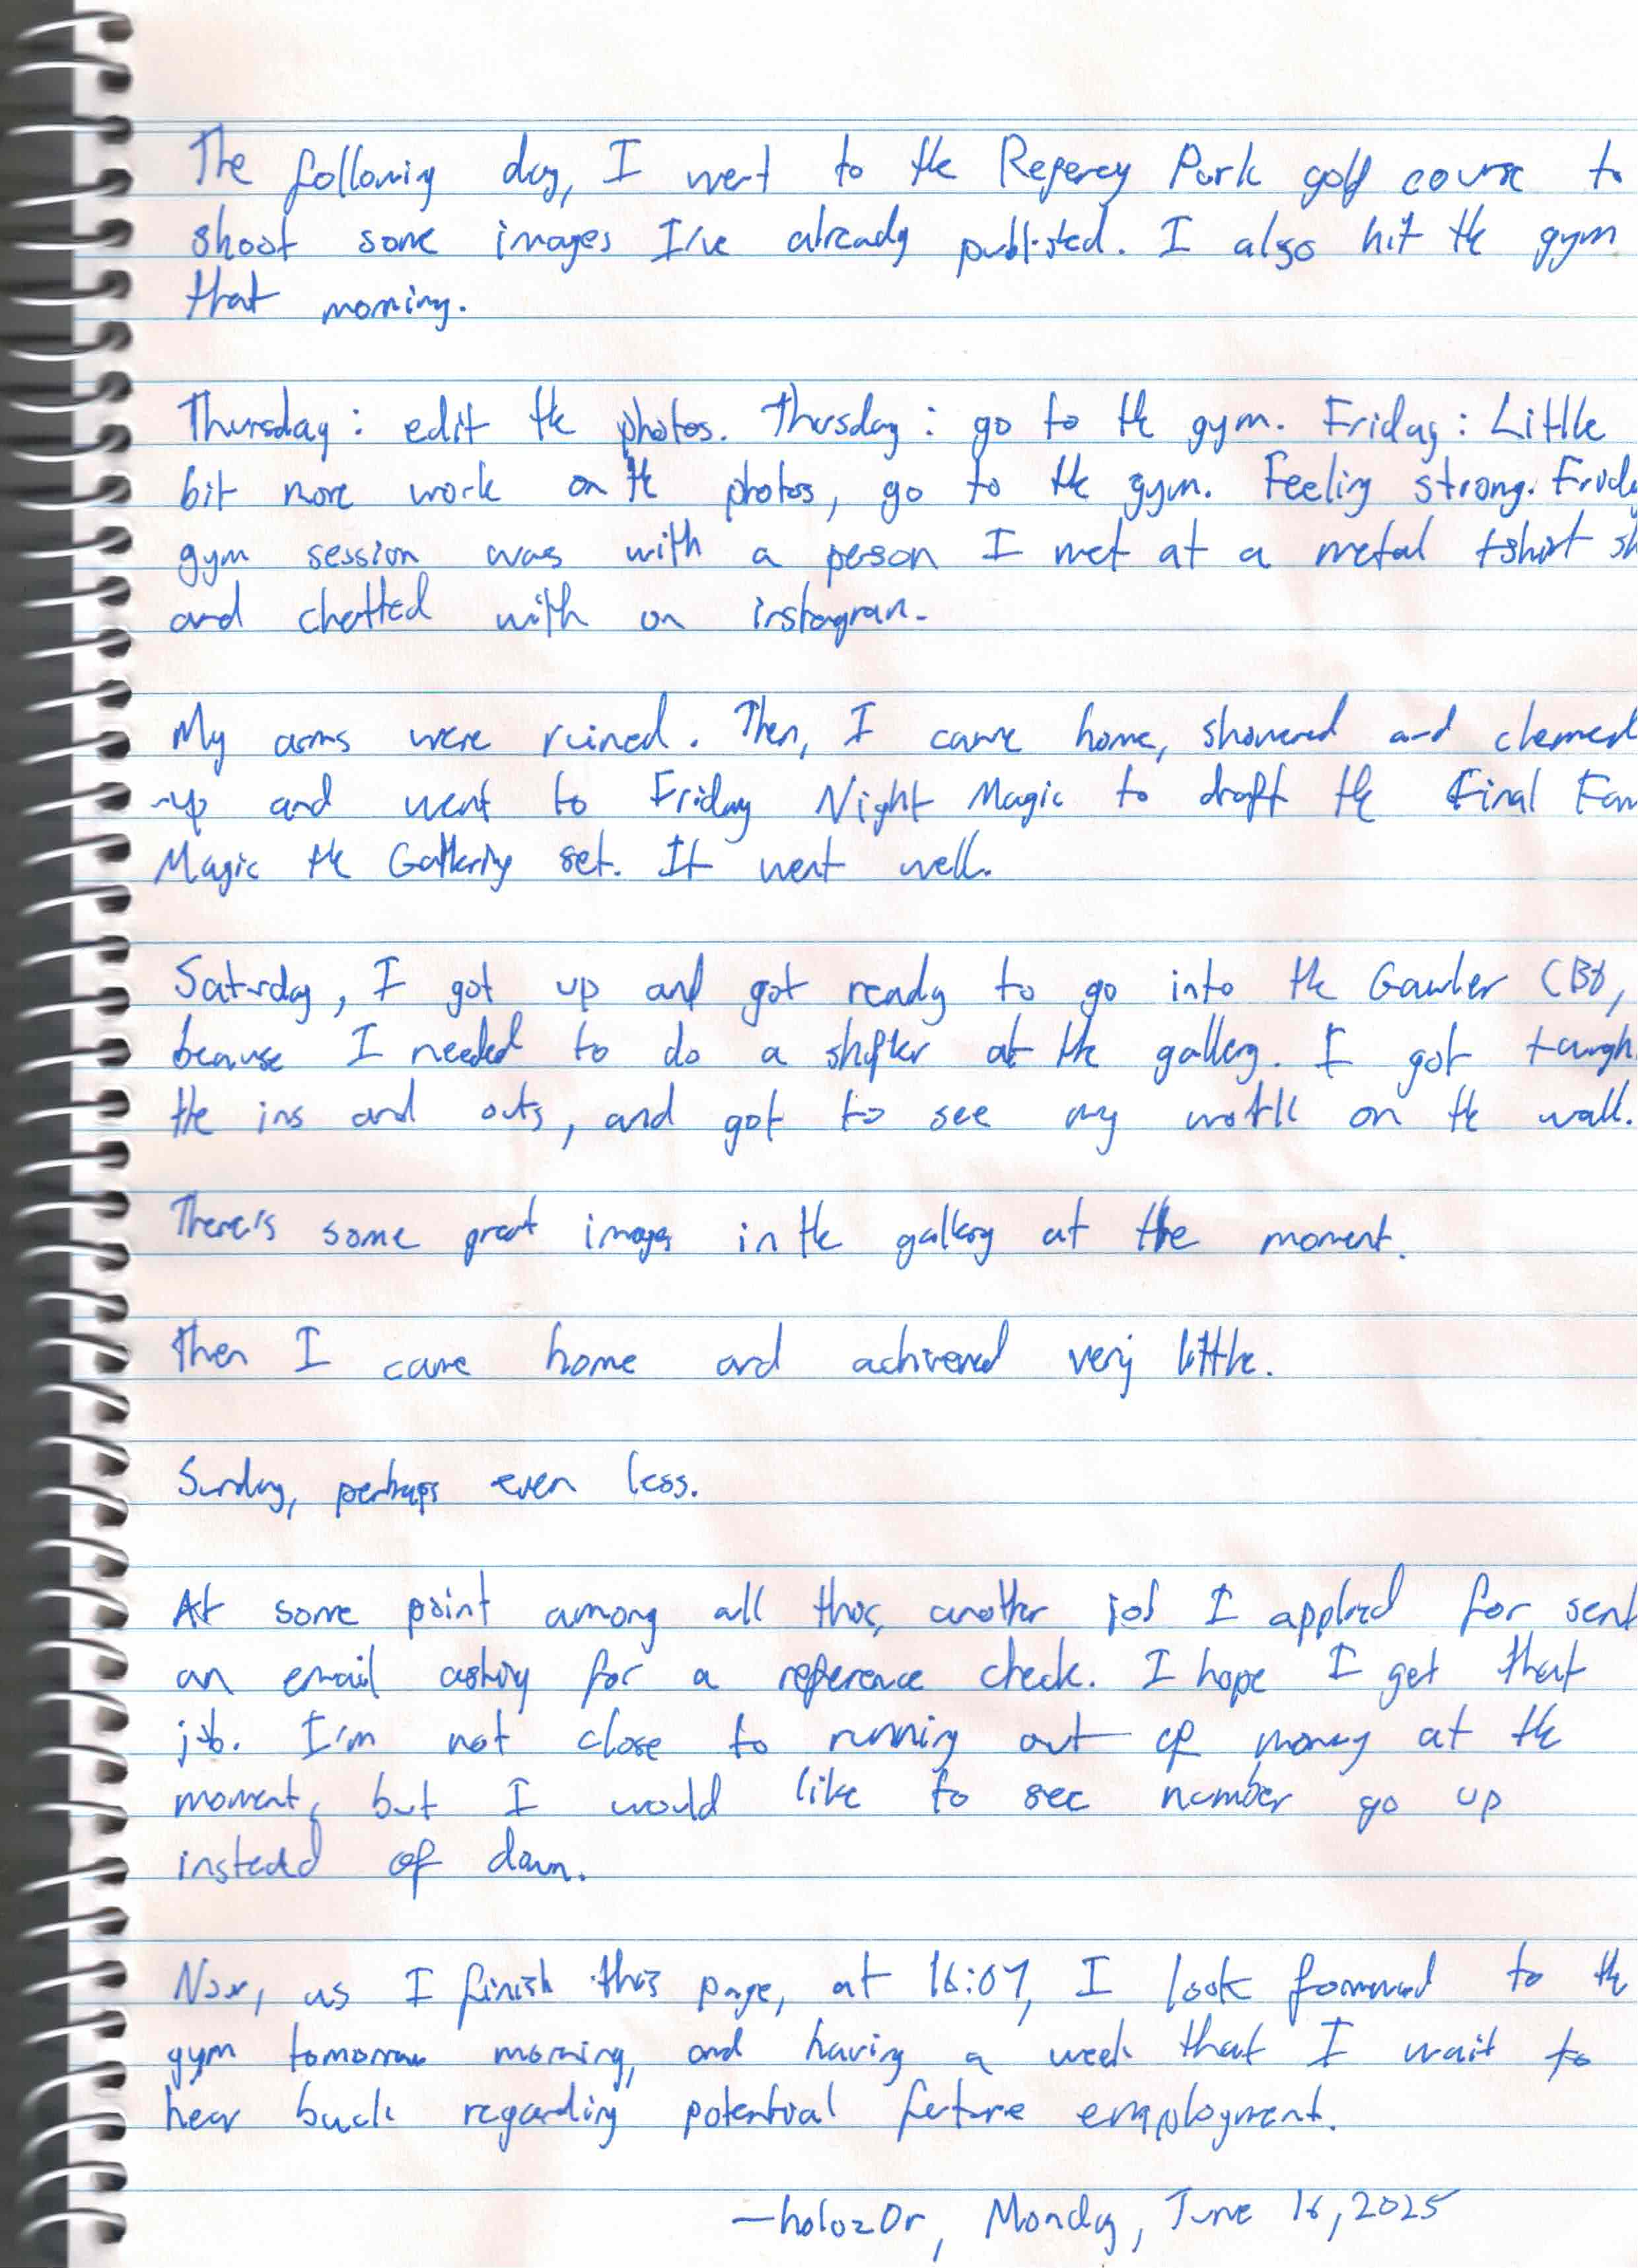 The following day, I went to the Regency Park golf course to
shoot some images I've already published. I also hit the gym
that morning.
Thursday: edit the photos. Thursday: go to the gym. Friday: Little
bit more work on the photos, go to the gym. Feeling strong. Friday
gym session was with a person I met at a metal tshirt sh
and chatted with on instagram.
My arms were ruined. Then, I came home, showered and cleaned
-up and went to Friday Night Magic to draft the Final Fan
Magic the Gathering set. It went well.
Saturday, I got up and got ready to go into the Gawler CBD,
because I needed to do a shifter at the gallery. I got taugh
the ins and outs, and got to see my work on the wall.
There's some great images in the gallery at the moment.
Then I came home and achieved very little.
Sunday, perhaps even less.
At some point among all this, another job I applied for sent
an email asking for a reference check. I hope I get that
job. I'm not close to running out of money at the
moment, but I would like to see number go up
instead of down.
Now, as I finish this page, at 16:07, I look forward to the
gym tomorrow morning, and having a week that I wait to
hear back regarding potential future employment.
—holoz0r, Monday, June 16, 2025